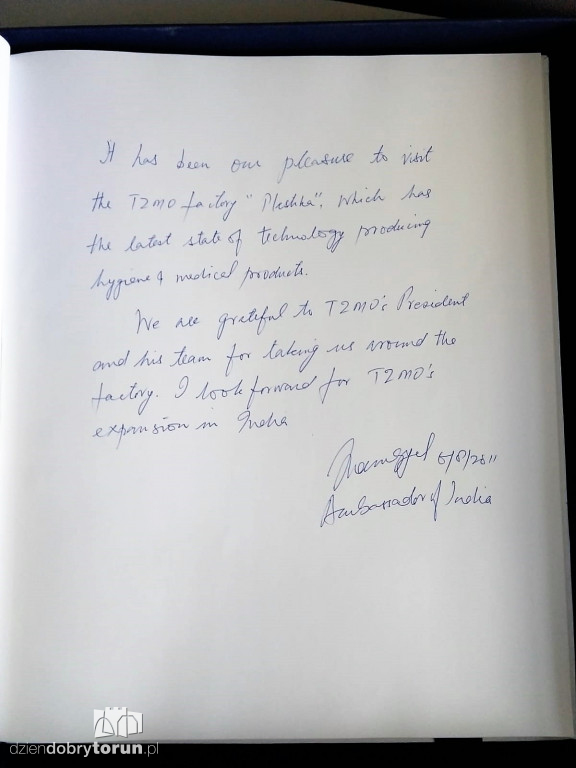 It has been our pleasure to visit
the TZMO factory "Pleshka", which has
the latest state of technology producing
hygiene & medical products.
We are grateful to TZMO's President
and his team for taking us around the
factory. I look forward for TZMO's
expansion in India
8/2011
Ambassador of India
dziendobrytorun.pl